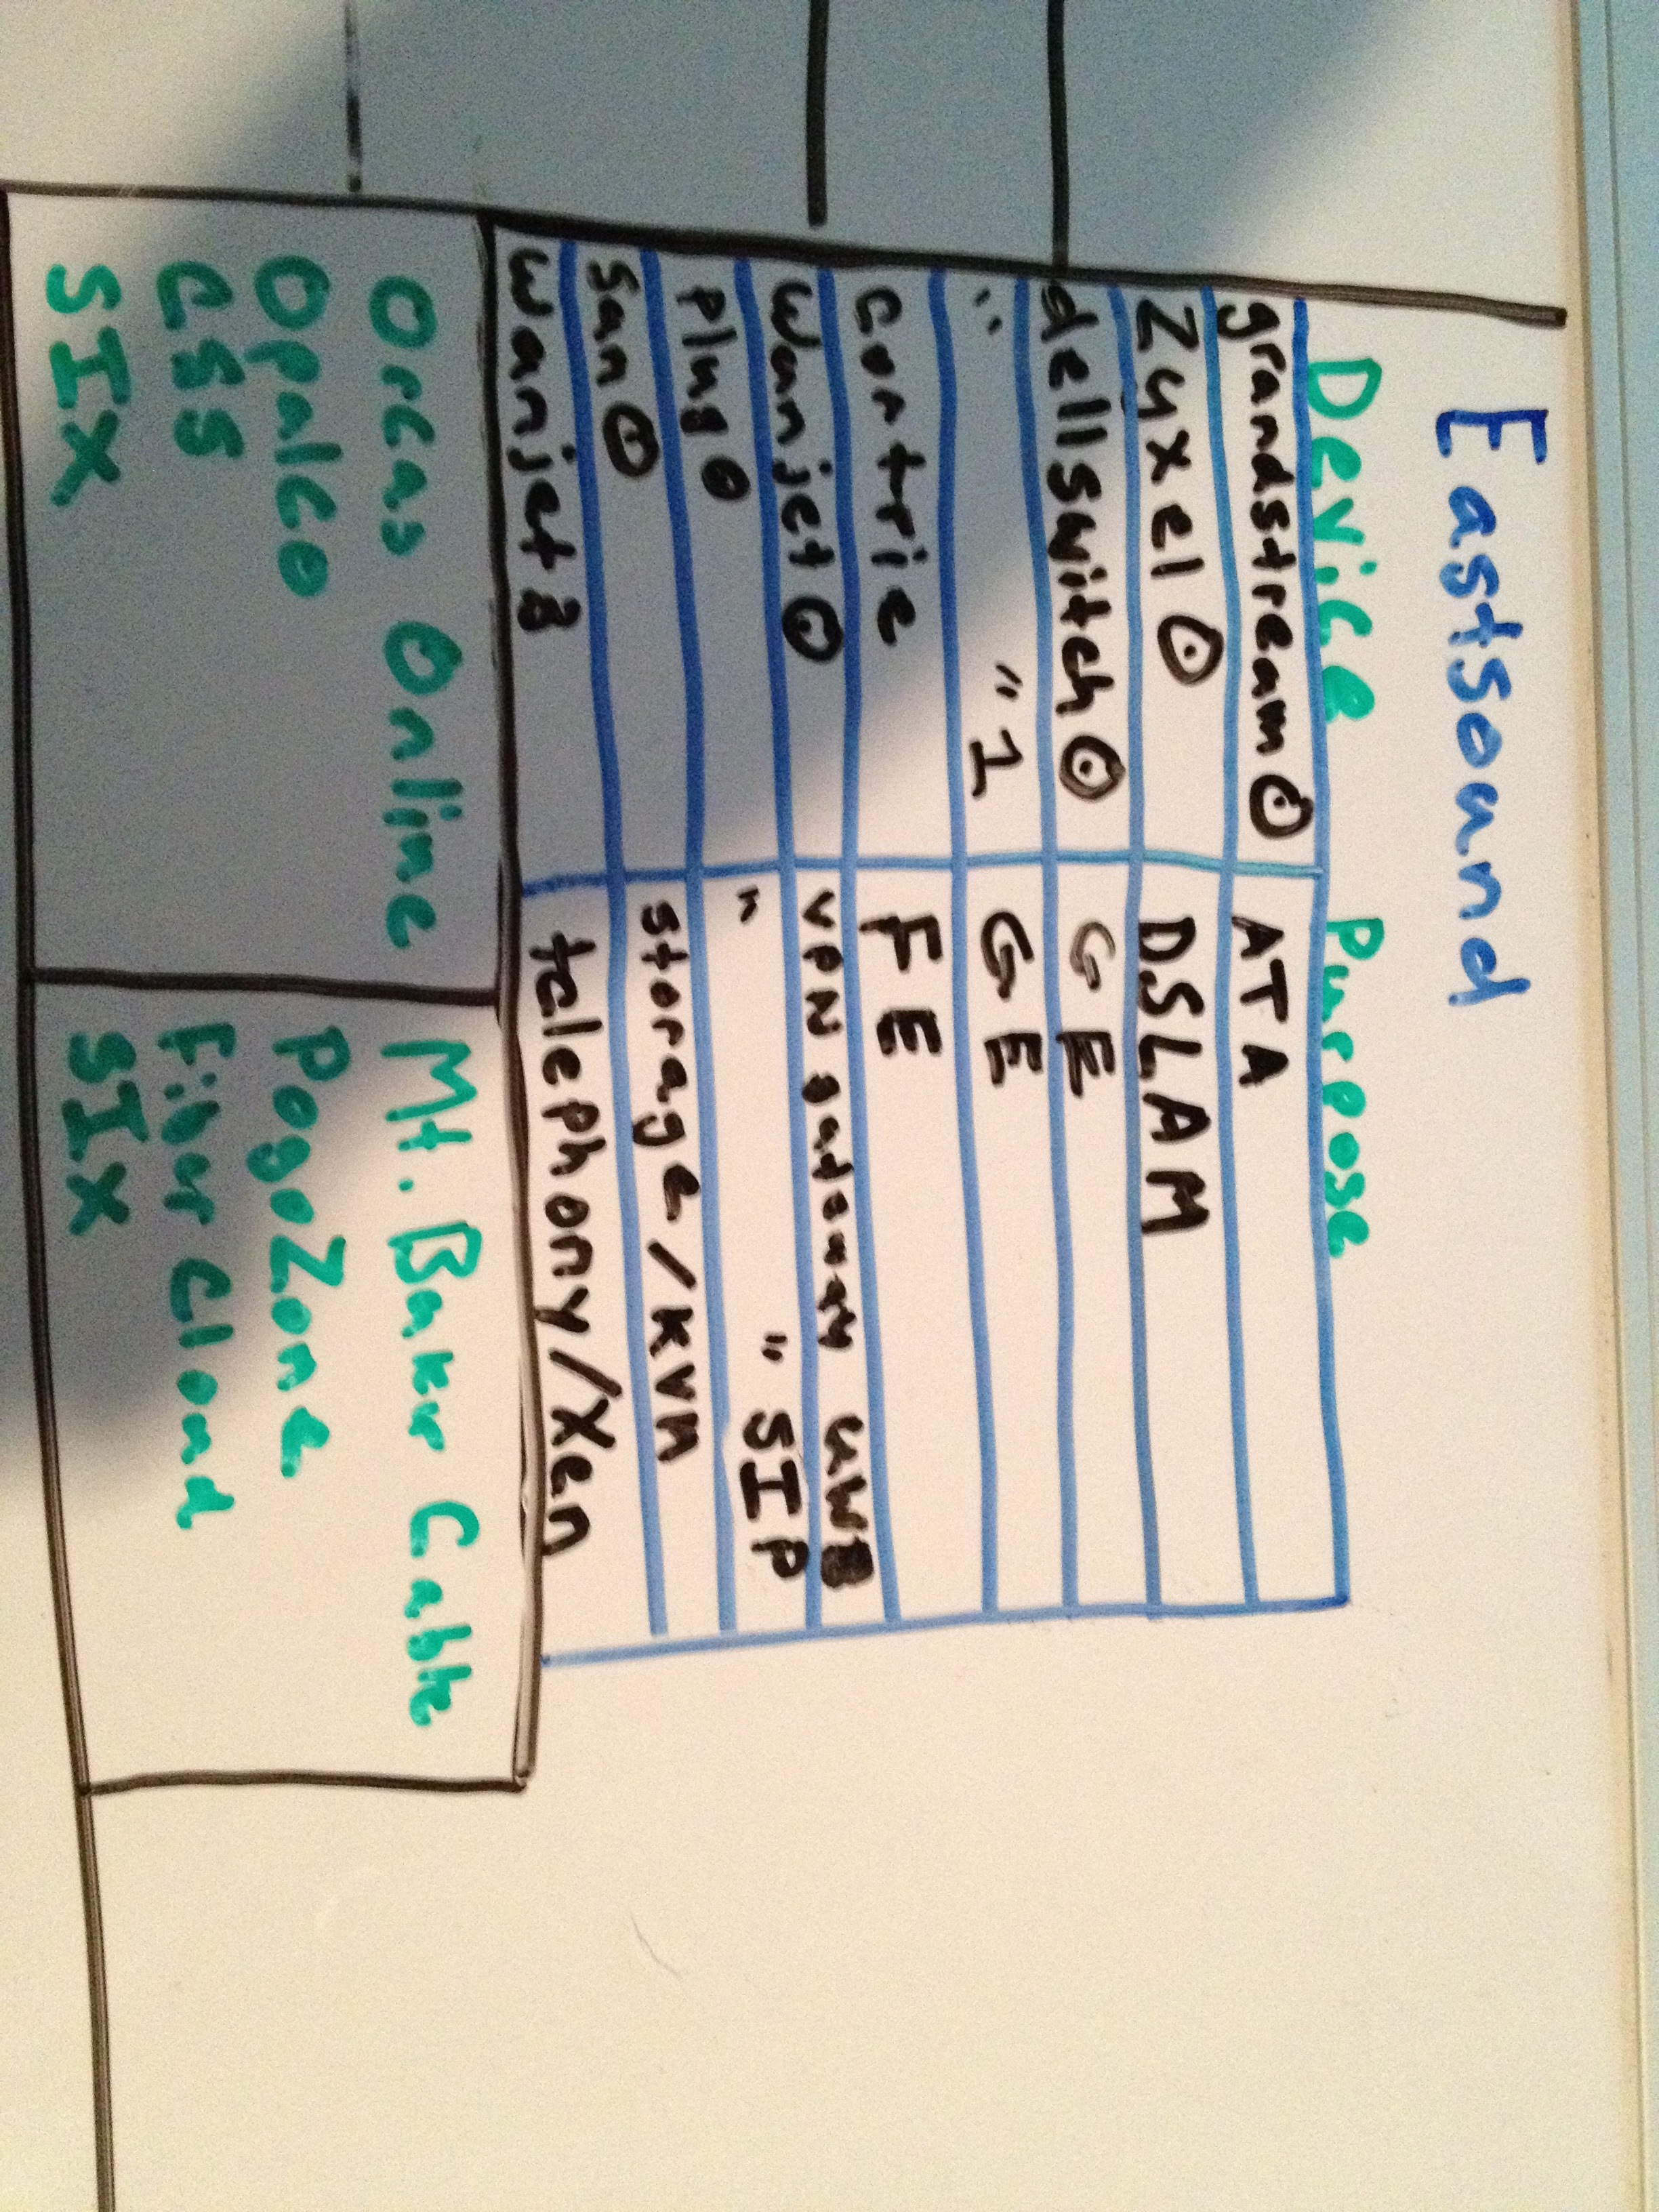 Eastsound
Device Purpose
grandstream0 ATA
Zyxel0 DSLAM
dellswitch0 GE
" "1 GE
Contrie FE
Wanjet0 VPN gateway UWB
plug0 " " SIP
San0 storage/KVM
Wanjet3 telephony/Xen
Orcas Online Mt. Baker Cable
Opalco PogoZone
CSS Fiber Cloud
SIX SIX